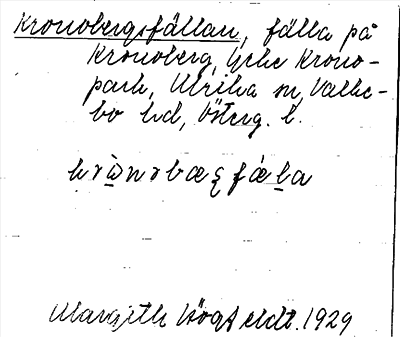 Kronobergsfällan, fälla på
Kronoberg, Ycke Krono-
park, Ulrika sn, Valke-
bo hd, Österg. l.
krònɔbæʂfæ̀la
Margith Högfeldt. 1929